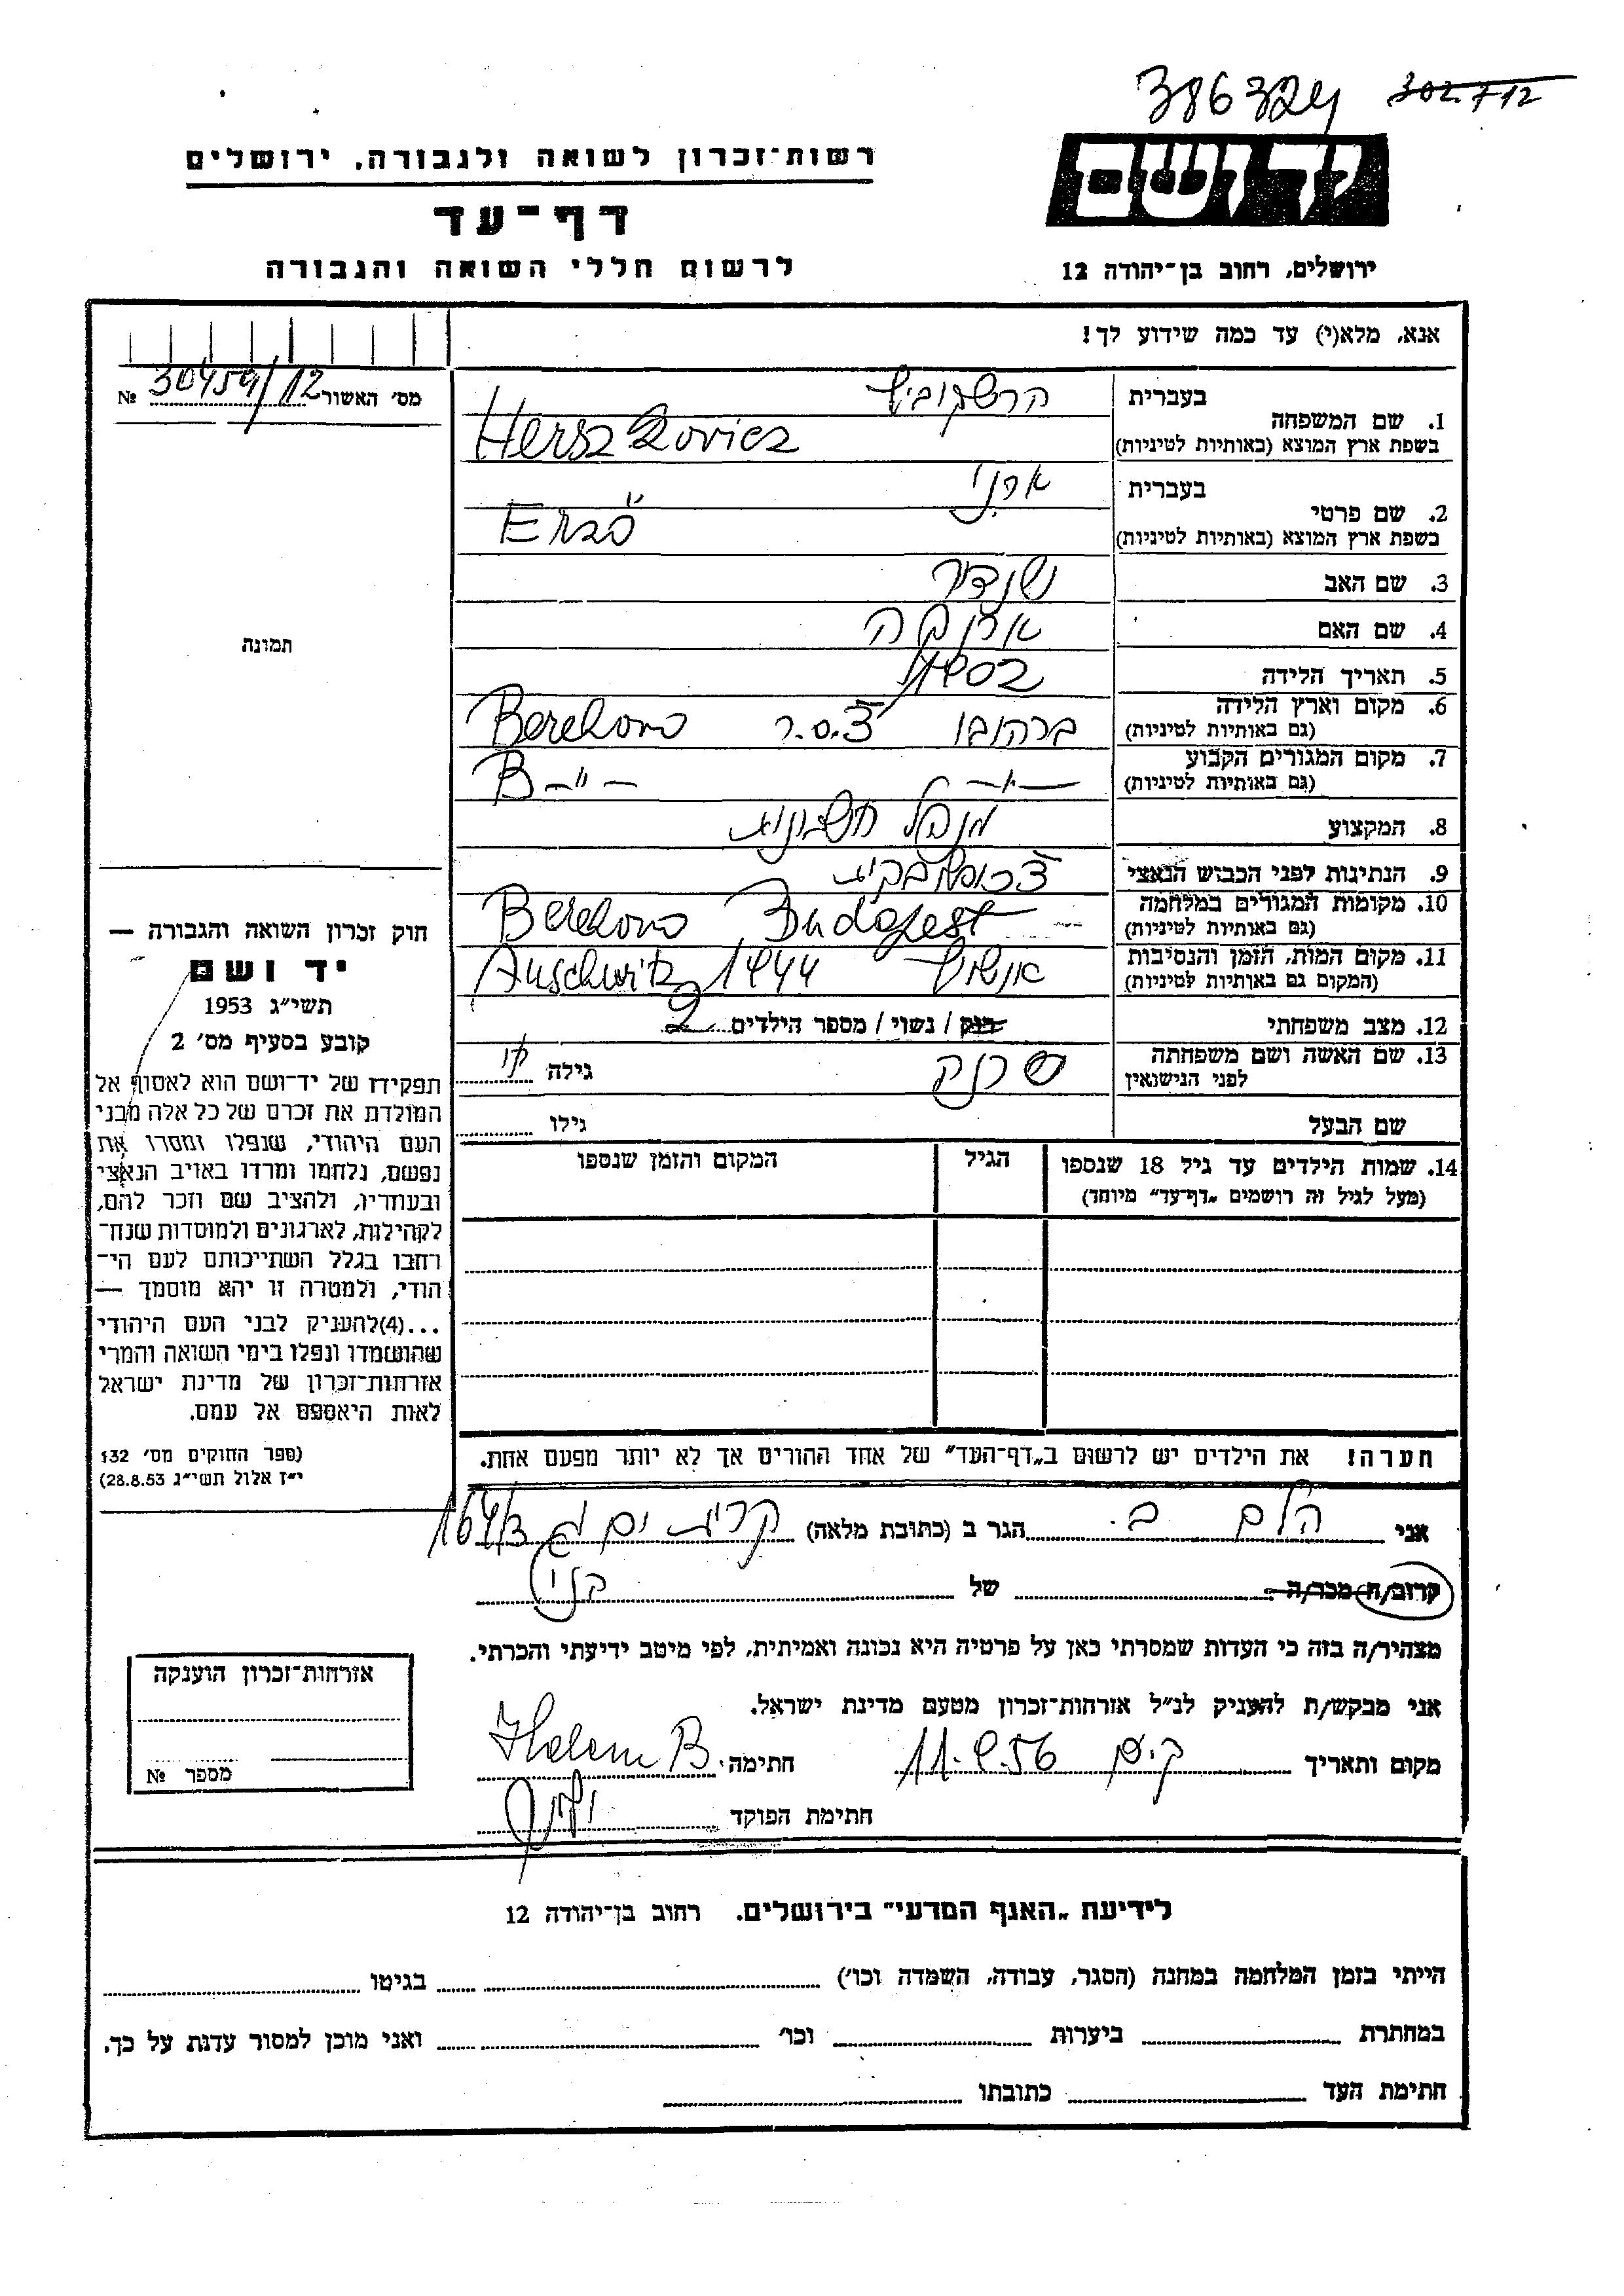 386324 302.712
יד ושם
רשות־זכרון לשואה ולגבורה, ירושלים
דף־עד
לרשום חללי השואה והגבורה
ירושלים, רחוב בן־יהודה 12
אנא, מלא(י) עד כמה שידוע לך!
מס׳ האשור 30459/12 №
תמונה
בעברית הרשקוביץ
1. שם המשפחה
בשפת ארץ המוצא (באותיות לטיניות) Herszkovicz
בעברית
2. שם פרטי
בשפת ארץ המוצא (באותיות לטיניות) Ernö
3. שם האב שנדור
4. שם האם
5. תאריך הלידה 1902
6. מקום וארץ הלידה ברהובו צ.ס.ר Berehovo
(גם באותיות לטיניות)
7. מקום המגורים הקבוע —״— B —״—
(גם באותיות לטיניות)
8. המקצוע מנהל חשבונות
9. הנתינות לפני הכבוש הנאצי
10. מקומות המגורים במלחמה Berehovo Budapest
(גם באותיות לטיניות)
11. מקום המות, הזמן והנסיבות אושויץ 1944 Auschwitz
(המקום גם באותיות לטיניות)
12. מצב משפחתי רוק / נשוי / מספר הילדים 2
13. שם האשה ושם משפחתה גילה
לפני הנישואין
שם הבעל גילו
14. שמות הילדים עד גיל 18 שנספו הגיל המקום והזמן שנספו
(מעל לגיל זה רושמים „דף־עד״ מיוחד)
הערה! את הילדים יש לרשום ב„דף־העד״ של אחד ההורים אך לא יותר מפעם אחת.
חוק זכרון השואה והגבורה —
יד ושם
תשי״ג 1953
קובע בסעיף מס׳ 2
תפקידו של יד־ושם הוא לאסוף אל
המולדת את זכרם של כל אלה מבני
העם היהודי, שנפלו ומסרו את
נפשם, נלחמו ומרדו באויב הנאצי
ובעוזריו, ולהציב שם וזכר להם,
לקהילות, לארגונים ולמוסדות שנח־
רבו בגלל השתייכותם לעם הי־
הודי, ולמטרה זו יהא מוסמך —
...(4)להעניק לבני העם היהודי
שהושמדו ונפלו בימי השואה והמרי
אזרחות־זכרון של מדינת ישראל
לאות היאספם אל עמם.
(ספר החוקים מס׳ 132
י״ז אלול תשי״ג 28.8.53)
אני הלם ב. הגר ב (כתובת מלאה) קרית ים ג 164/3
קרוב/ה מכר/ה של
מצהיר/ה בזה כי העדות שמסרתי כאן על פרטיה היא נכונה ואמיתית, לפי מיטב ידיעתי והכרתי.
אני מבקש/ת להעניק לנ״ל אזרחות־זכרון מטעם מדינת ישראל.
מקום ותאריך ק.ים 11.9.56 חתימה Helem B
חתימת הפוקד
אזרחות־זכרון הוענקה
מספר №
לידיעת „האגף המדעי״ בירושלים. רחוב בן־יהודה 12
הייתי בזמן המלחמה במחנה (הסגר, עבודה, השמדה וכו׳) בגיטו
במחתרת ביערות וכו׳ ואני מוכן למסור עדות על כך.
חתימת העד כתובתו